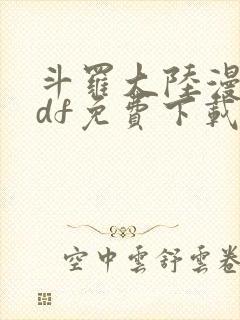 斗羅大陸漫
df免費下載
空中雲舒雲卷